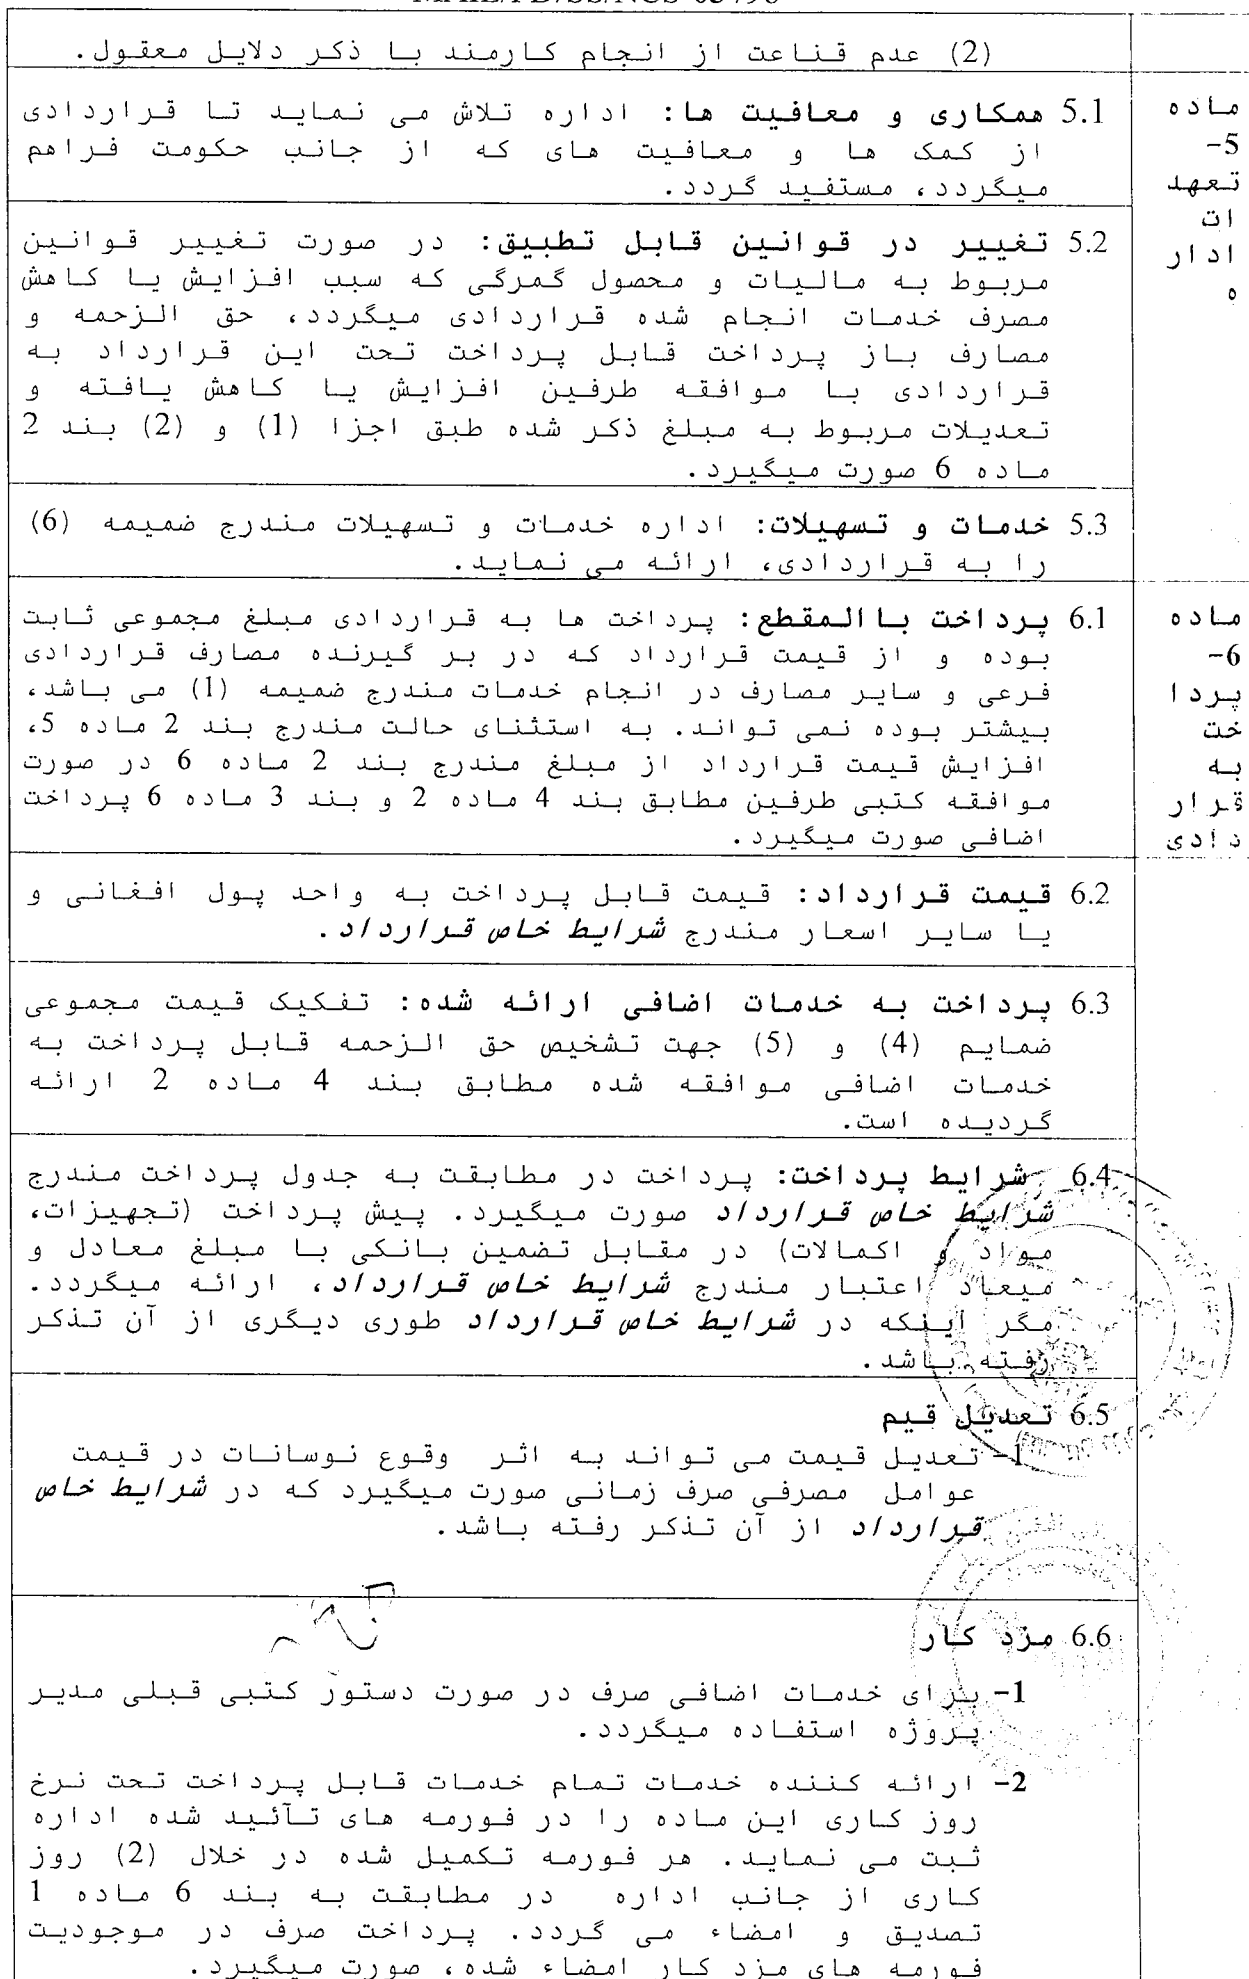 (2) عدم قناعت از انجام کارمند با ذکر دلایل معقول.
ماده
5-
تعهد
ات
ادار
ه
5.1 همکاری و معافیت ها: اداره تلاش می نماید تا قراردادی
از کمک ها و معافیت های که از جانب حکومت فراهم
میگردد، مستفید گردد.
5.2 تغییر در قوانین قابل تطبیق: در صورت تغییر قوانین
مربوط به مالیات و محصول گمرگی که سبب افزایش یا کاهش
مصرف خدمات انجام شده قراردادی میگردد، حق الزحمه و
مصارف باز پرداخت قابل پرداخت تحت این قرارداد به
قراردادی با موافقه طرفین افزایش یا کاهش یافته و
تعدیلات مربوط به مبلغ ذکر شده طبق اجزا (1) و (2) بند 2
ماده 6 صورت میگیرد.
5.3 خدمات و تسهیلات: اداره خدمات و تسهیلات مندرج ضمیمه (6)
را به قراردادی، ارائه می نماید.
ماده
6-
پردا
خت
به
قرار
دادی
6.1 پرداخت باالمقطع: پرداخت ها به قراردادی مبلغ مجموعی ثابت
بوده و از قیمت قرارداد که در بر گیرنده مصارف قراردادی
فرعی و سایر مصارف در انجام خدمات مندرج ضمیمه (1) می باشد،
بیشتر بوده نمی تواند. به استثنای حالت مندرج بند 2 ماده 5،
افزایش قیمت قرارداد از مبلغ مندرج بند 2 ماده 6 در صورت
موافقه کتبی طرفین مطابق بند 4 ماده 2 و بند 3 ماده 6 پرداخت
اضافی صورت میگیرد.
6.2 قیمت قرارداد: قیمت قابل پرداخت به واحد پول افغانی و
یا سایر اسعار مندرج شرایط خاص قرارداد.
6.3 پرداخت به خدمات اضافی ارائه شده: تفکیک قیمت مجموعی
ضمایم (4) و (5) جهت تشخیص حق الزحمه قابل پرداخت به
خدمات اضافی موافقه شده مطابق بند 4 ماده 2 ارائه
گردیده است.
6.4 شرایط پرداخت: پرداخت در مطابقت به جدول پرداخت مندرج
شرایط خاص قرارداد صورت میگیرد. پیش پرداخت (تجهیزات،
مواد و اکمالات) در مقابل تضمین بانکی با مبلغ معادل و
میعاد اعتبار مندرج شرایط خاص قرارداد، ارائه میگردد.
مگر اینکه در شرایط خاص قرارداد طوری دیگری از آن تذکر
رفته باشد.
6.5 تعدیل قیم
1- تعدیل قیمت می تواند به اثر وقوع نوسانات در قیمت
عوامل مصرفی صرف زمانی صورت میگیرد که در شرایط خاص
قرارداد از آن تذکر رفته باشد.
6.6 مزد کار
1- برای خدمات اضافی صرف در صورت دستور کتبی قبلی مدیر
پروژه استفاده میگردد.
2- ارائه کننده خدمات تمام خدمات قابل پرداخت تحت نرخ
روز کاری این ماده را در فورمه های تآئید شده اداره
ثبت می نماید. هر فورمه تکمیل شده در خلال (2) روز
کاری از جانب اداره در مطابقت به بند 6 ماده 1
تصدیق و امضاء می گردد. پرداخت صرف در موجودیت
فورمه های مزد کار امضاء شده، صورت میگیرد.